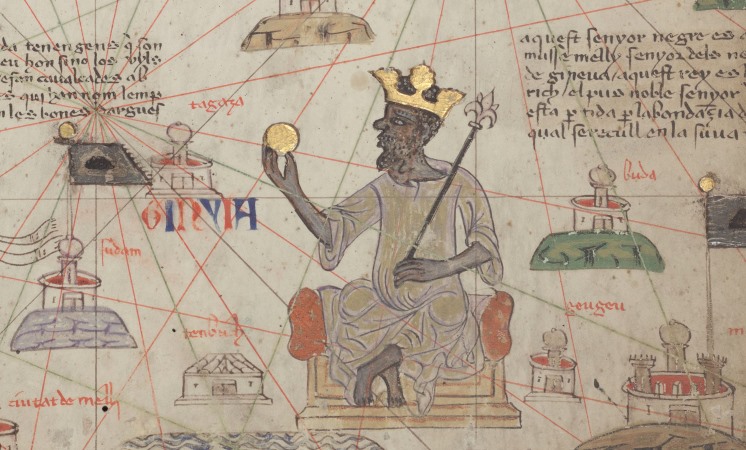 da tenen gens q̃ son
eu hon sino los uyls
esen caualcades ab
s qui han nom lemp
n les bones dargues
aquest senyor negre es
musse melly senyor dels ne
de gineua aquest rey es
rich el pus noble senyor
esta ꝑtida ꝑ labondaçia d
qual se recull en la sua
tagaza
GINYIA
buda
sudam
geugeu
tenbuch
ciutat de melli